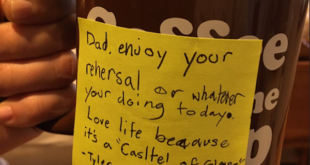 Coffee
Dad, enjoy your
rehersal or whatever
your doing today.
Love life because
it's a "Casltel of Glass"
-Tyler